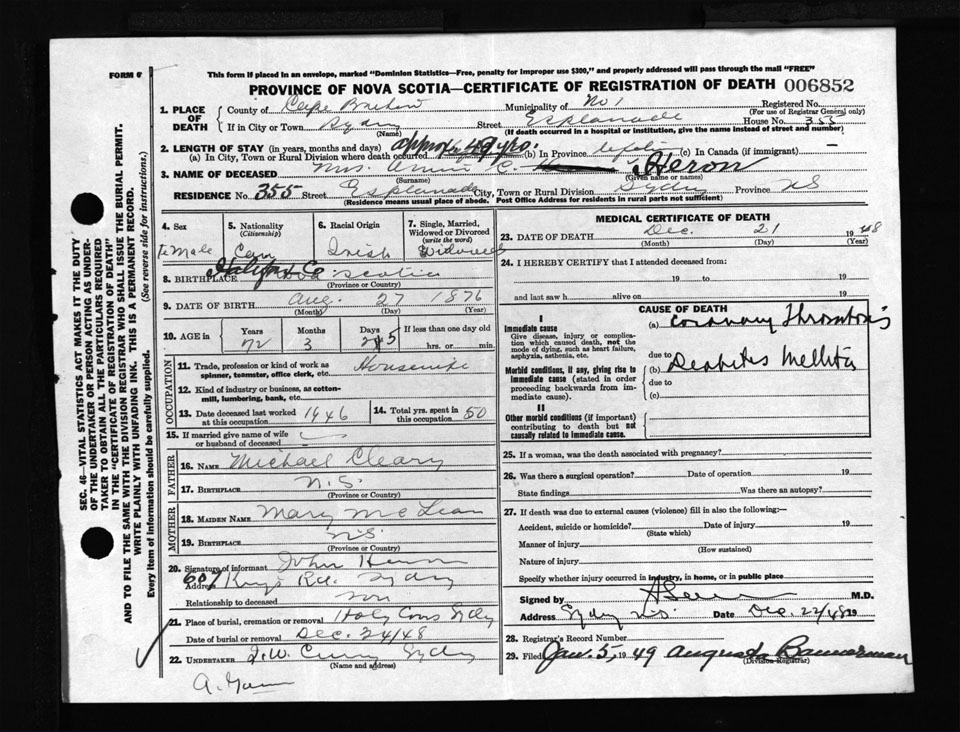 FORM 6
This form if placed in an envelope, marked "Dominion Statistics—Free, penalty for improper use $300," and properly addressed will pass through the mail "FREE"
PROVINCE OF NOVA SCOTIA—CERTIFICATE OF REGISTRATION OF DEATH 006852
SEC. 46—VITAL STATISTICS ACT MAKES IT THE DUTY
OF THE UNDERTAKER OR PERSON ACTING AS UNDER-
TAKER TO OBTAIN ALL THE PARTICULARS REQUIRED
IN THE "CERTIFICATE OF REGISTRATION OF DEATH"
AND TO FILE THE SAME WITH THE DIVISION REGISTRAR WHO SHALL ISSUE THE BURIAL PERMIT.
WRITE PLAINLY WITH UNFADING INK. THIS IS A PERMANENT RECORD.
Every item of information should be carefully supplied. (See reverse side for instructions.)
1. PLACE OF DEATH County of Cape Breton Municipality of No 1 Registered No.
(For use of Registrar General only)
If in City or Town Sydney Street Esplanade House No. 355
(Name) (If death occurred in a hospital or institution, give the name instead of street and number)
2. LENGTH OF STAY (in years, months and days)
(a) In City, Town or Rural Division where death occurred approx 49 yrs. (b) In Province life (c) In Canada (if immigrant) —
3. NAME OF DECEASED Mrs. Annie C. Heron
(Surname) (Given name or names)
RESIDENCE No. 355 Street Esplanade City, Town or Rural Division Sydney Province NS
(Residence means usual place of abode. Post Office Address for residents in rural parts not sufficient)
4. Sex Female
5. Nationality (Citizenship) Can
6. Racial Origin Irish
7. Single, Married, Widowed or Divorced (write the word) Widowed
8. BIRTHPLACE Halifax Co Nova Scotia
(Province or Country)
9. DATE OF BIRTH Aug. 27 1876
(Month) (Day) (Year)
10. AGE in Years 72 Months 3 Days 25 If less than one day old
hrs. or min.
OCCUPATION
11. Trade, profession or kind of work as spinner, teamster, office clerk, etc. Housewife
12. Kind of industry or business, as cotton-mill, lumbering, bank, etc.
13. Date deceased last worked at this occupation 1946
14. Total yrs. spent in this occupation 50
15. If married give name of wife or husband of deceased
FATHER
16. NAME Michael Cleary
17. BIRTHPLACE N.S.
(Province or Country)
MOTHER
18. MAIDEN NAME Mary McLean
19. BIRTHPLACE NS
(Province or Country)
20. Signature of informant John Heron
Address 607 Kings Rd. Sydney
Relationship to deceased son
21. Place of burial, cremation or removal Holy Cross Sydney
Date of burial or removal Dec. 24/48
22. UNDERTAKER J.W. Curry Sydney
(Name and address)
MEDICAL CERTIFICATE OF DEATH
23. DATE OF DEATH Dec. 21 1948
(Month) (Day) (Year)
24. I HEREBY CERTIFY that I attended deceased from:
19 to 19
and last saw h alive on 19
CAUSE OF DEATH
I
Immediate cause
Give disease, injury or complication which caused death, not the mode of dying, such as heart failure, asphyxia, asthenia, etc.
(a) Coronary Thrombosis
due to
Morbid conditions, if any, giving rise to immediate cause (stated in order proceeding backwards from immediate cause).
(b) Diabetes Mellitus
due to
(c)
II
Other morbid conditions (if important) contributing to death but not causally related to immediate cause.
25. If a woman, was the death associated with pregnancy?
26. Was there a surgical operation? Date of operation 19
State findings Was there an autopsy?
27. If death was due to external causes (violence) fill in also the following:—
Accident, suicide or homicide? Date of injury 19
(State which)
Manner of injury
(How sustained)
Nature of injury
Specify whether injury occurred in industry, in home, or in public place
Signed by M.D.
Address Sydney N.S. Date Dec. 22/48 19
28. Registrar's Record Number
29. Filed Jan. 5, 1949 Augusta Bannerman
(Division Registrar)